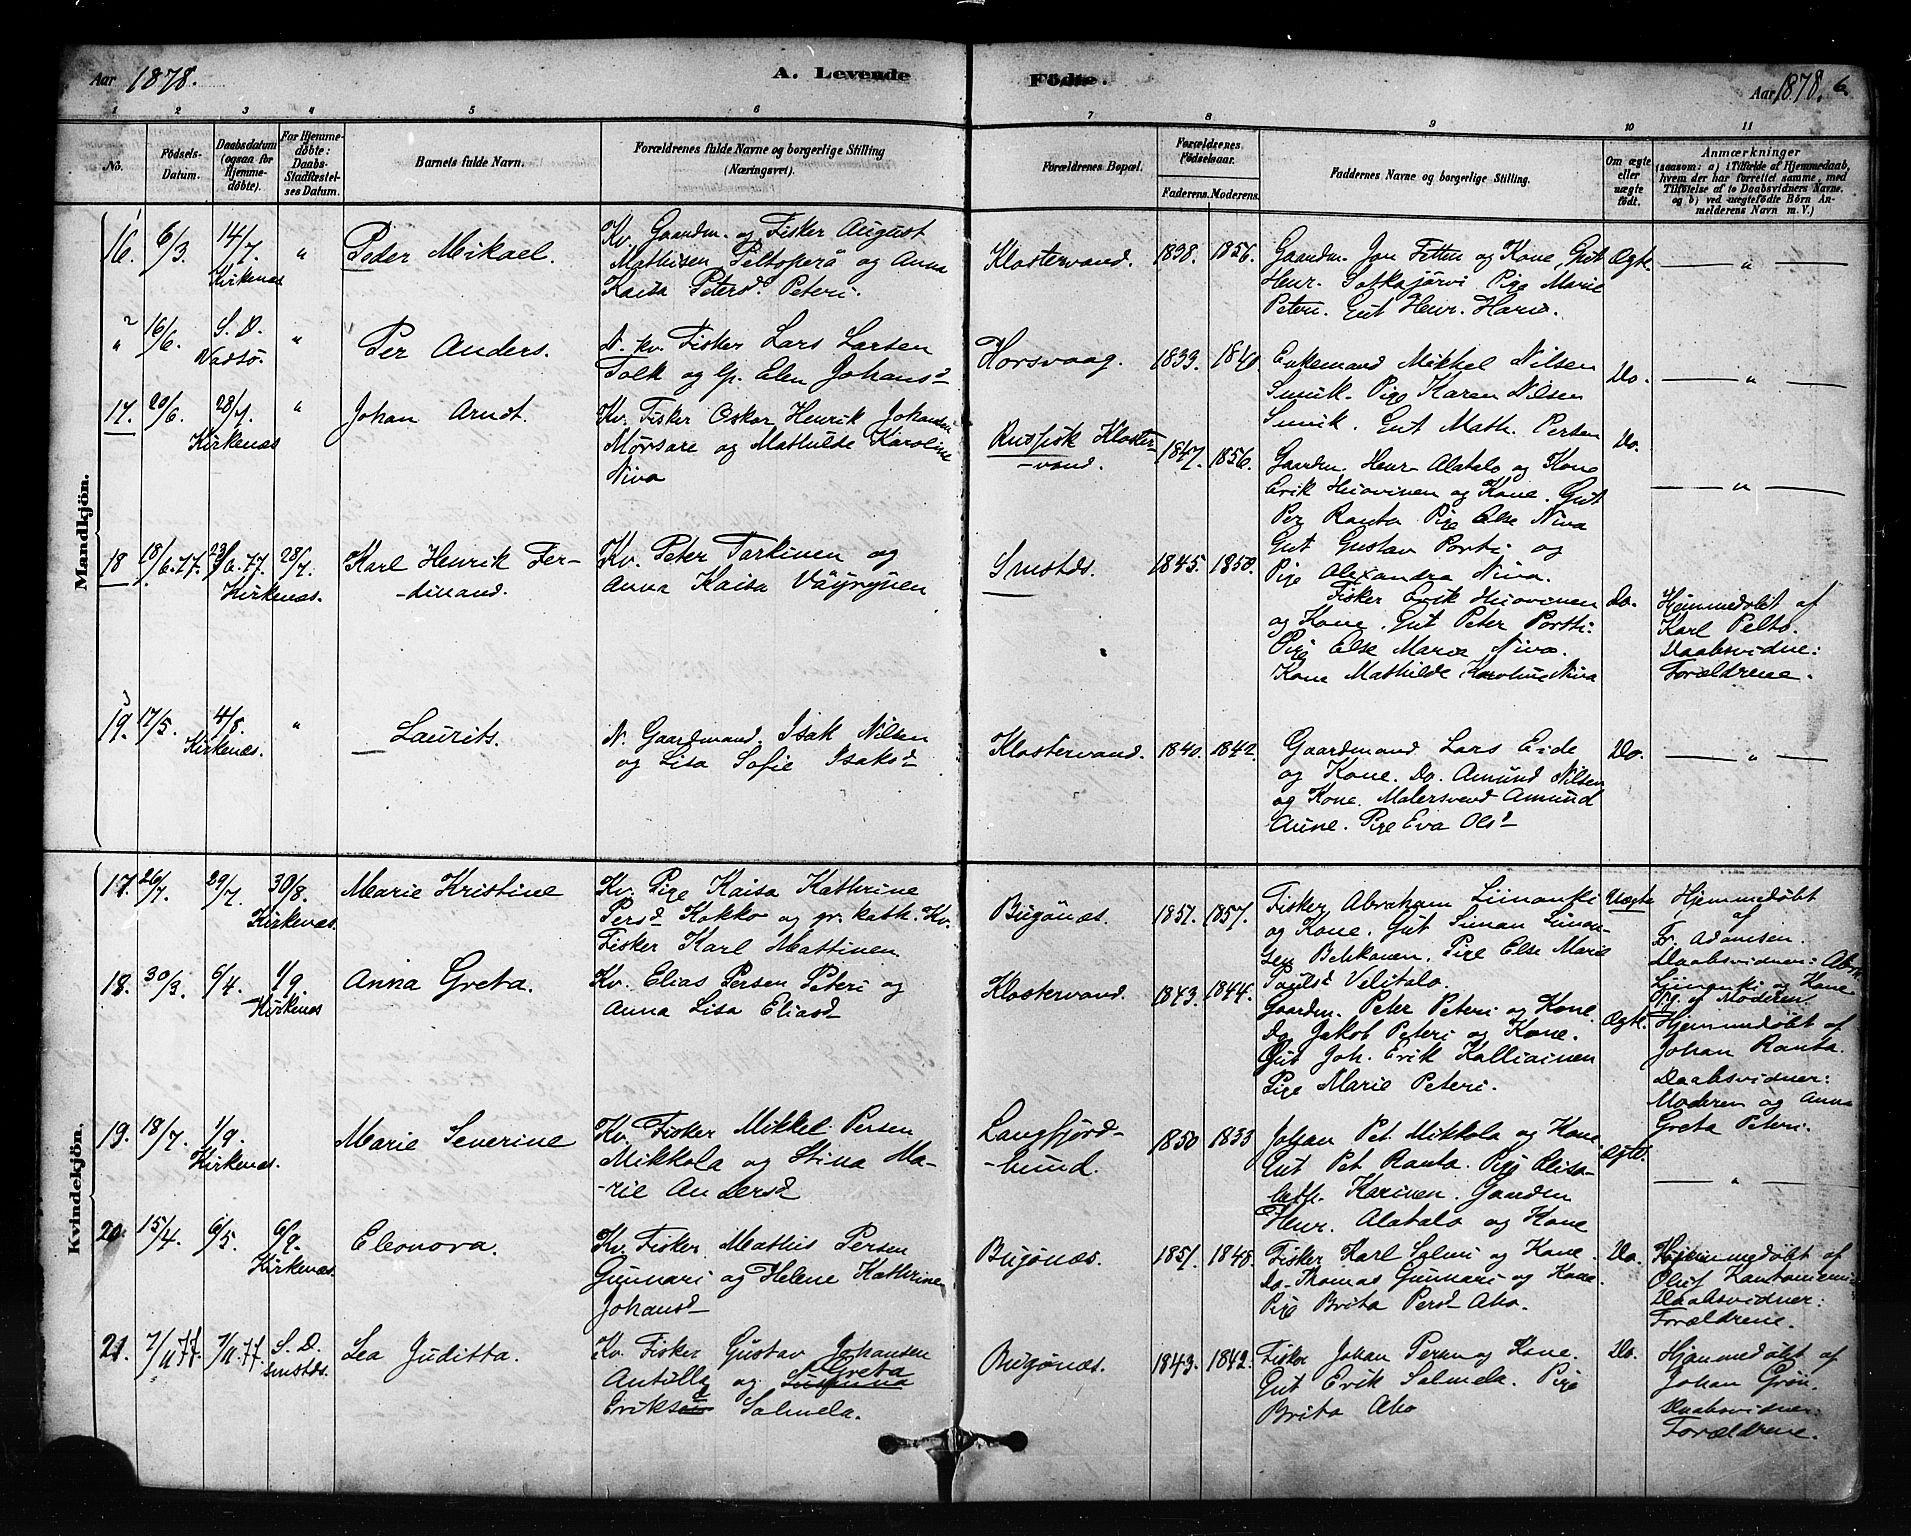 Aar 1878.
A. Levende
Födte.
Aar 1878. 6.
1 2 3 4 5 6 7 8 9 10 11
No.
Födsels-Datum.
Daabsdatum (ogsaa for Hjemme-döbte).
For Hjemme-döbte: Daabs-Stadfæstel-ses Datum.
Barnets fulde Navn.
Forældrenes fulde Navne og borgerlige Stilling (Næringsvei).
Forældrenes Bopæl.
Forældrenes Födselsaar.
Faderens. Moderens.
Faddernes Navne og borgerlige Stilling.
Om ægte eller uægte födt.
Anmærkninger
(saasom: a) i Tilfælde af Hjemmedaab, hvem der har forrettet samme, med Tilföielse af to Daabsvidners Navne, og b) ved uægtefödte Börn An-melderens Navn m. V.)
Mandkjön.
16. 6/3 14/7. Kirkenæs " Peder Mikael.
Kv. Gaardm. og Fisker August
Mathisen Peltoperä og Anna
Kaisa Petersd. Peteri.
Klostervand. 1838. 1856.
Gaardm. Jon Fetten og Kone, Gut
Henr. Potkajärvi Pige Marie
Peteri. Gut Henr. Harie.
Ægt. — " —
" 16/6. S. D. Vadsö. " Per Anders.
N. kv. Fisker Lars Larsen
Tolk og Elen Johansd
Korsvaag. 1833. 1840
Enkemand Mikkel Nilsen
Smuk. Pige Karen Nilsen
Smuk. Gut Math. Persen
Do. — " —
17. 20/6 28/7. Kirkenæs " Johan Arndt.
Kv. Fisker Oskar Henrik Johansen
Mörsare og Mathilde Karoline
Niva
Russisk Kloster-
-vand. 1847. 1856.
Gaardm. Henr Alatalo og Kone
Erik Huovinen og Kone. Gut
Per Ranta Pige Else Niva
Gut Gustav Portti og
Pige Alexandra Niva.
Do. — " —
18 18/6.77. 23/6.77. 28/7. Kirkenæs. Karl Henrik Fer-
-dinand.
Kv. Peter Tarkinen og
Anna Kaisa Väyrynen
Smstds. 1845. 1850.
Fisker Erik Huovinen
og Kone. Gut Peter Portti.
Pige Else Marie Niva.
Kone Mathilde Karoline Niva
Do.
Hjemmedöbt af
Karl Pelto.
Daabsvidne:
Forældrene.
19. 17/5. 4/8. Kirkenæs. " Laurits.
N. Gaardmand. Isak Nilsen
og Lisa Sofie Isaksd
Klostervand. 1840. 1842.
Gaardmand Lars Eide
og Kone. Do. Amund Nilsen
og Kone. Malersvend Amund
Aune. Pige Eva Olsd
Do. — " —
Kvindekjön.
17. 26/7. 29/7. 30/8. Kirkenæs. Marie Kristine
Kv. Pige Kaisa Kathrine
Persd Kokko og gr. kath. Kv.
Fisker Karl Mattinen
Bugönæs. 1851. 1857.
Fisker Abraham Liinanki
og Kone. Gut Siman Siman-
sen Pige Else Marie
Poulsd Velitalo.
Uægte
Hjemmedöbt
af
Fr. Adamsen.
Daabsvidner: Abr.
Liinanki og Kone
Moderen.
18. 30/3. 6/4. 1/9. Kirkenæs Anna Greta.
Kv. Elias Persen Peteri og
Anna Lisa Eliasd
Klostervand. 1843. 1844.
Gaardm. Peter Peteri og Kone.
Do Jakob Peteri og Kone.
Gut Joh. Erik Kalliainen
Pige Marie Peteri.
Ægt.
Hjemmedöbt af
Johan Ranta.
Daabsvidner:
Moderen og Anna
Greta Peteri.
19. 18/7 1/9. Kirkenæs. Marie Severine
Kv. Fisker Mikkel Persen
Mikkola og Stina Ma-
-rie Andersd
Langfjord-
-bund. 1850 1833
Johan Pet. Mikkola og Kone
Gut Pet. Ranta. Pige Elisa-
beth. Karinen. Gaardm
Henr. Alatalo og Kone
Ægte. — " —
20. 15/4. 6/5. 6/9. Kirkenæs Eleonora.
Kv. Fisker Mathis Persen
Gunnari og Helene Kathrine
Johansd
Bugönæs. 1851. 1848.
Fisker Karl Salmi og Kone.
Do Thomas Gunnari og Kone.
Pige Brita Persd Aho.
Do.
Hjemmedöbt af
Oluf
Daabsvidner:
Forældrene.
21. 7/11 77. 7/11.77. S. D. smstds. Lea Juditta.
Kv. Fisker Gustav Johansen
Antilla og Susanna Greta
Eriksen d Salmela.
Bugönæs. 1843. 1842.
Fisker Johan Persen og Kone.
Gut Erik Salmela. Pige
Brita Aho
Do.
Hjemmedöbt af
Johan Grön.
Daabsvidner:
Forældrene.